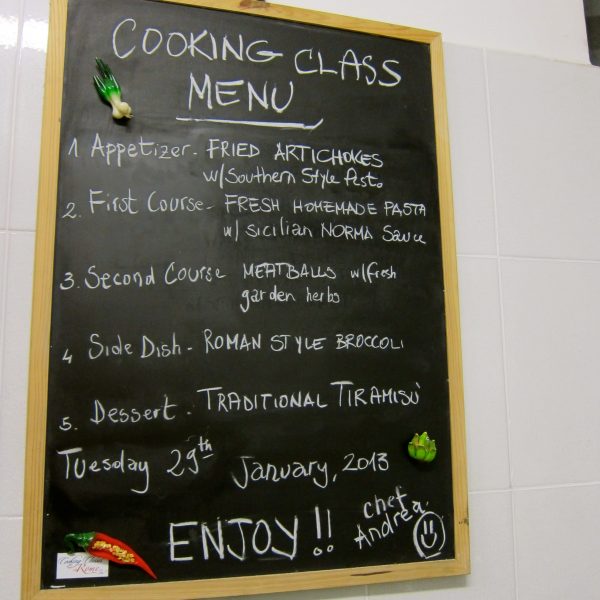 COOKING CLASS
MENU
1 Appetizer - FRIED ARTICHOKES
w/Southern Style Pesto
2. First Course - FRESH HOMEMADE PASTA
w/ sicilian NORMA Sauce
3. Second Course MEATBALLS w/fresh
garden herbs
4 Side Dish - ROMAN STYLE BROCCOLI
5. Dessert - TRADITIONAL TIRAMISÙ
Tuesday 29th January, 2013
ENJOY!!
chef
Andrea
Cooking Classes
Rome